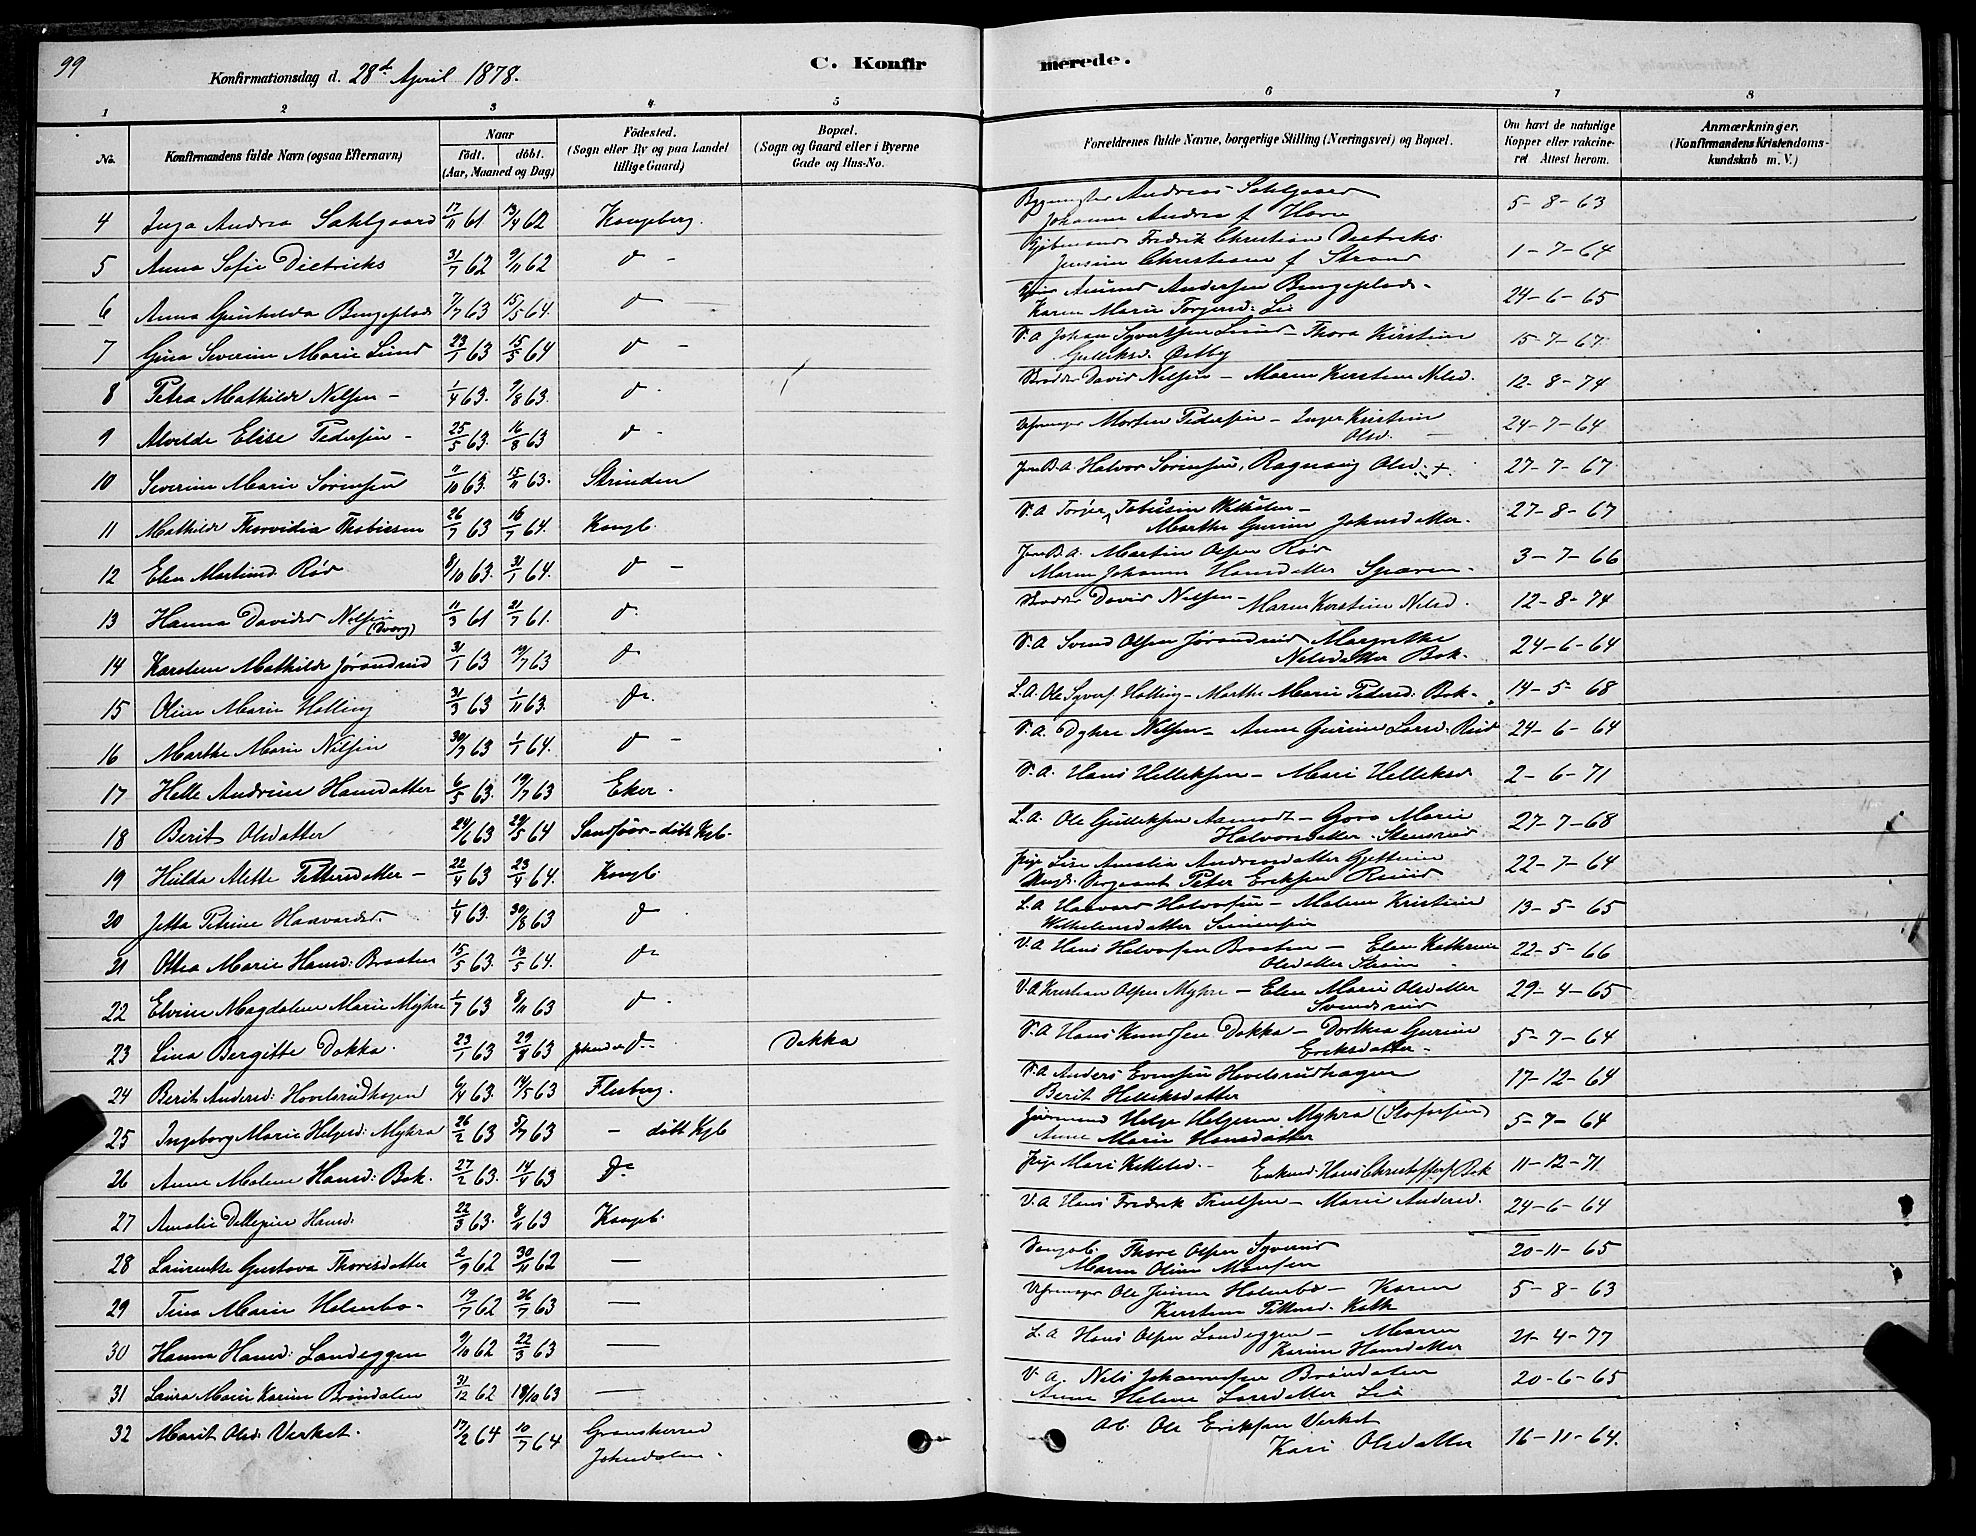 99
Konfirmationsdag d. 28d April 1878.
C. Konfirmerede.
1 2 3 4 5 6 7 8
No.
Konfirmandens fulde Navn (ogsaa Efternavn)
Naar
födt. döbt.
(Aar, Maaned og Dag)
Födested.
(Sogn eller By og paa Landet
tillige Gaard)
Bopæl.
(Sogn og Gaard eller i Byerne
Gade og Hus-No.
Forældrenes fulde Navne, borgerlige Stilling (Næringsvei) og Bopæl.
Om havt de naturlige
Kopper eller vakcine-
ret Attest herom.
Anmærkninger.
(Konfirmandens Kristendoms-
kundskab m. V.)
4 Inga Andrea Sahlgaard 17/11 61 62 Kongsberg. Andreas Sahlgaard
Johanne Andrea f. Horn 5-8-63
5 Anna Sofie Dietrichs 31/7 62 9/11 62 d - Fredrik Christian Dietrichs
Christiane f. Strand 1-7-64
6 Anna Gunhilda Bingeplads 7/7 63 15/5 64. d Andersen Bingeplads -
Karen Marie Torgersd. Lie 24-6-65
7 Gina Severine Marie Lund 23/1 63 15/5 64 d - V.A Johan Syvertsen Lund - Thora Kirstine
Gulliksd. Østby 15-7-67
8 Petra Mathilde Nilsen - 1/4 63. 9/8 63. d David Nilsen - Maren Kirstine Nilsd. 12-8-74
9 Alvilde Elise Pedersen - 25/5 63. 16/8 63 d - Morten Pedersen - Inger Kristine
Olsd. - 24-7-64
10 Severine Marie Sörensen 11/10 63. 15/11 63. Strinden Halvor Sörensen, Ragnvig Olsd. + 27-7-67
11 Mathilde Thorvidia Thobiesen 26/7 63 16/7 64. Kongb. V.A Torjer Tobisen
Marthe Gurine Johnsdatter. 27-8-67
12 Elen Martine Röd 8/10 63. 31/1 64. d - Martin Olsen Röd
Maren Johanne Hansdatter 3-7-66
13 Hanna Davida Nilsen
(Dverg) 11/3 61 21/7 61. d. David Nilsen - Maren Kirstine Nilsd. 12-8-74
14 Karoline Mathilde Jörandrud 31/1 63 19/7 63 d V.A Svend Olsen Jörandrud Margrethe
Nilsdatter Bok. 24-6-64
15 Oline Marie Halling 31/3 63 1/11 63. do. L.A. Ole Syvers. Halling - Marthe Marie Petersd. Bok - 14-5-68
16 Marthe Marie Nilsen 30/9 63 1/1 64. d - V.A. Nilsen - Anne Gurine Larsd. Rud 24-6-64
17 Helle Andrine Hansdatter 6/5 63. 19/7 63 Eker. V.A. Hans Helleksen - Mari Helleksd 2-6-71
18 Berit Olsdatter 24/6 63 29/5 64 Sandsvær - döbt Kgb. L.A. Ole Gulleksen Aamodt - Goro Marie
Halvorsdatter Stensrud 27-7-68
19 Hulda Mette Pettersdatter - 22/4 63 23/4 64. Kongb. Pige Lise Amalia Andersdatter
Ungk. Sergeant Peter Eriksen Ruud 22-7-64
20 Jetta Petrine Haavardsd 1/4 63. 30/8 63 d L.A Haavard Halvorsen - Malene Kristine
Wilhelmsdatter Simensen 13-5-65
21 Othea Marie Hansd: Braaten 15/5 63. 13/5 64. do V.A Hans Halvorsen Braaten - Elen Kathrine
Olsdatter Strøm 22-5-66
22 Elvine Magdalene Marie Myhre 1/7 63 8/11 63 d. V.A Kristian Olsen Myhre - Elen Marie Olsdatter
Svendsrud 29-4-65
23 Lina Bergitte Dokka. 23/1 63 29/8 63 d- Dokka V.A Hans Knudsen Dokka - Dorthea Gurine
Eriksdatter - 5-7-64
24 Berit Andersd: Hovelsrudhagen 6/4 63. 14/5 63 Flesberg. V.A Anders Evensen Hovelsrudhagen
Berit Helleksdatter 17-12-64
25 Ingeborg Marie Helgesd: Myhra 26/2 63 5/7 63 - döbt Kgb Helge Helgesen Myhra
Anne Marie Hansdatter 5-7-64
26 Anne Malene Hansd: Bok. 27/2 63. 14/4 63 Do Pige Mari Kittelsd. - Enkem. Hans Christoffersen Bok 11-12-71
27 Amalie Hansd: 22/3 63. 8/11 63 Kongb. V.A Hans Fredrik Truelsen - Marie Andersd. 24-6-64
28 Laurentse Gustava Thorisdatter 2/9 62 30/11 62 — Thore Olsen Syverud
Maren Oline Monsen 20-11-65
29 Tina Marie Holmbo - 19/7 62 26/7 63 — Ole Jensen Holmbo - Karen
Kirstine Pettersd. 5-8-63
30 Hanna Hansd: Landeggen 9/10 62 22/3 63 — L.A Hans Olsen Landeggen - Maren
Karine Hansdatter 21-4-77
31 Laura Marie Karine Bröndalen 31/12 62 18/10 63 — V.A. Nils Johannesen Bröndalen
Anne Helene Larsdatter Lia 20-6-65
32 Marit Olsd: Verket. 17/2 64 10/7 64 Gransherred
Johndalen. Arb. Ole Eriksen Verket
Kari Olsdatter 16-11-64.